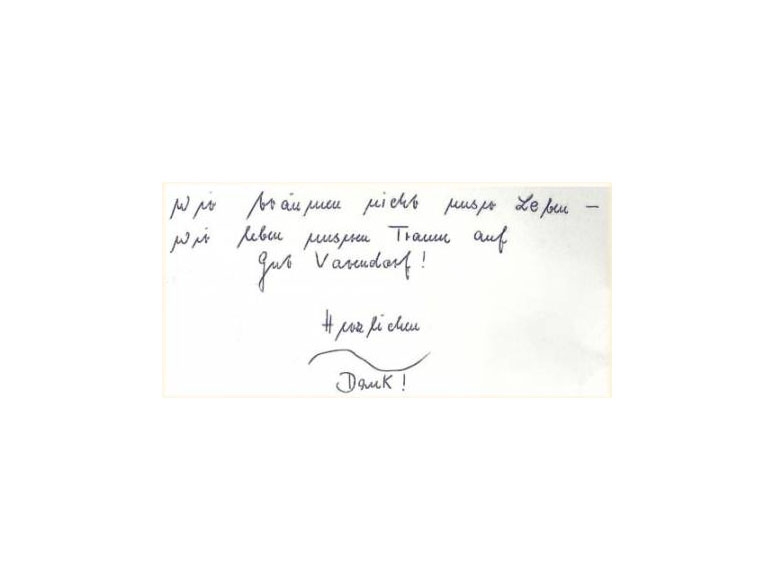 Wir träumen nicht unser Leben –
wir leben unseren Traum auf
Gut Varendorf!
Herzlichen
Dank!